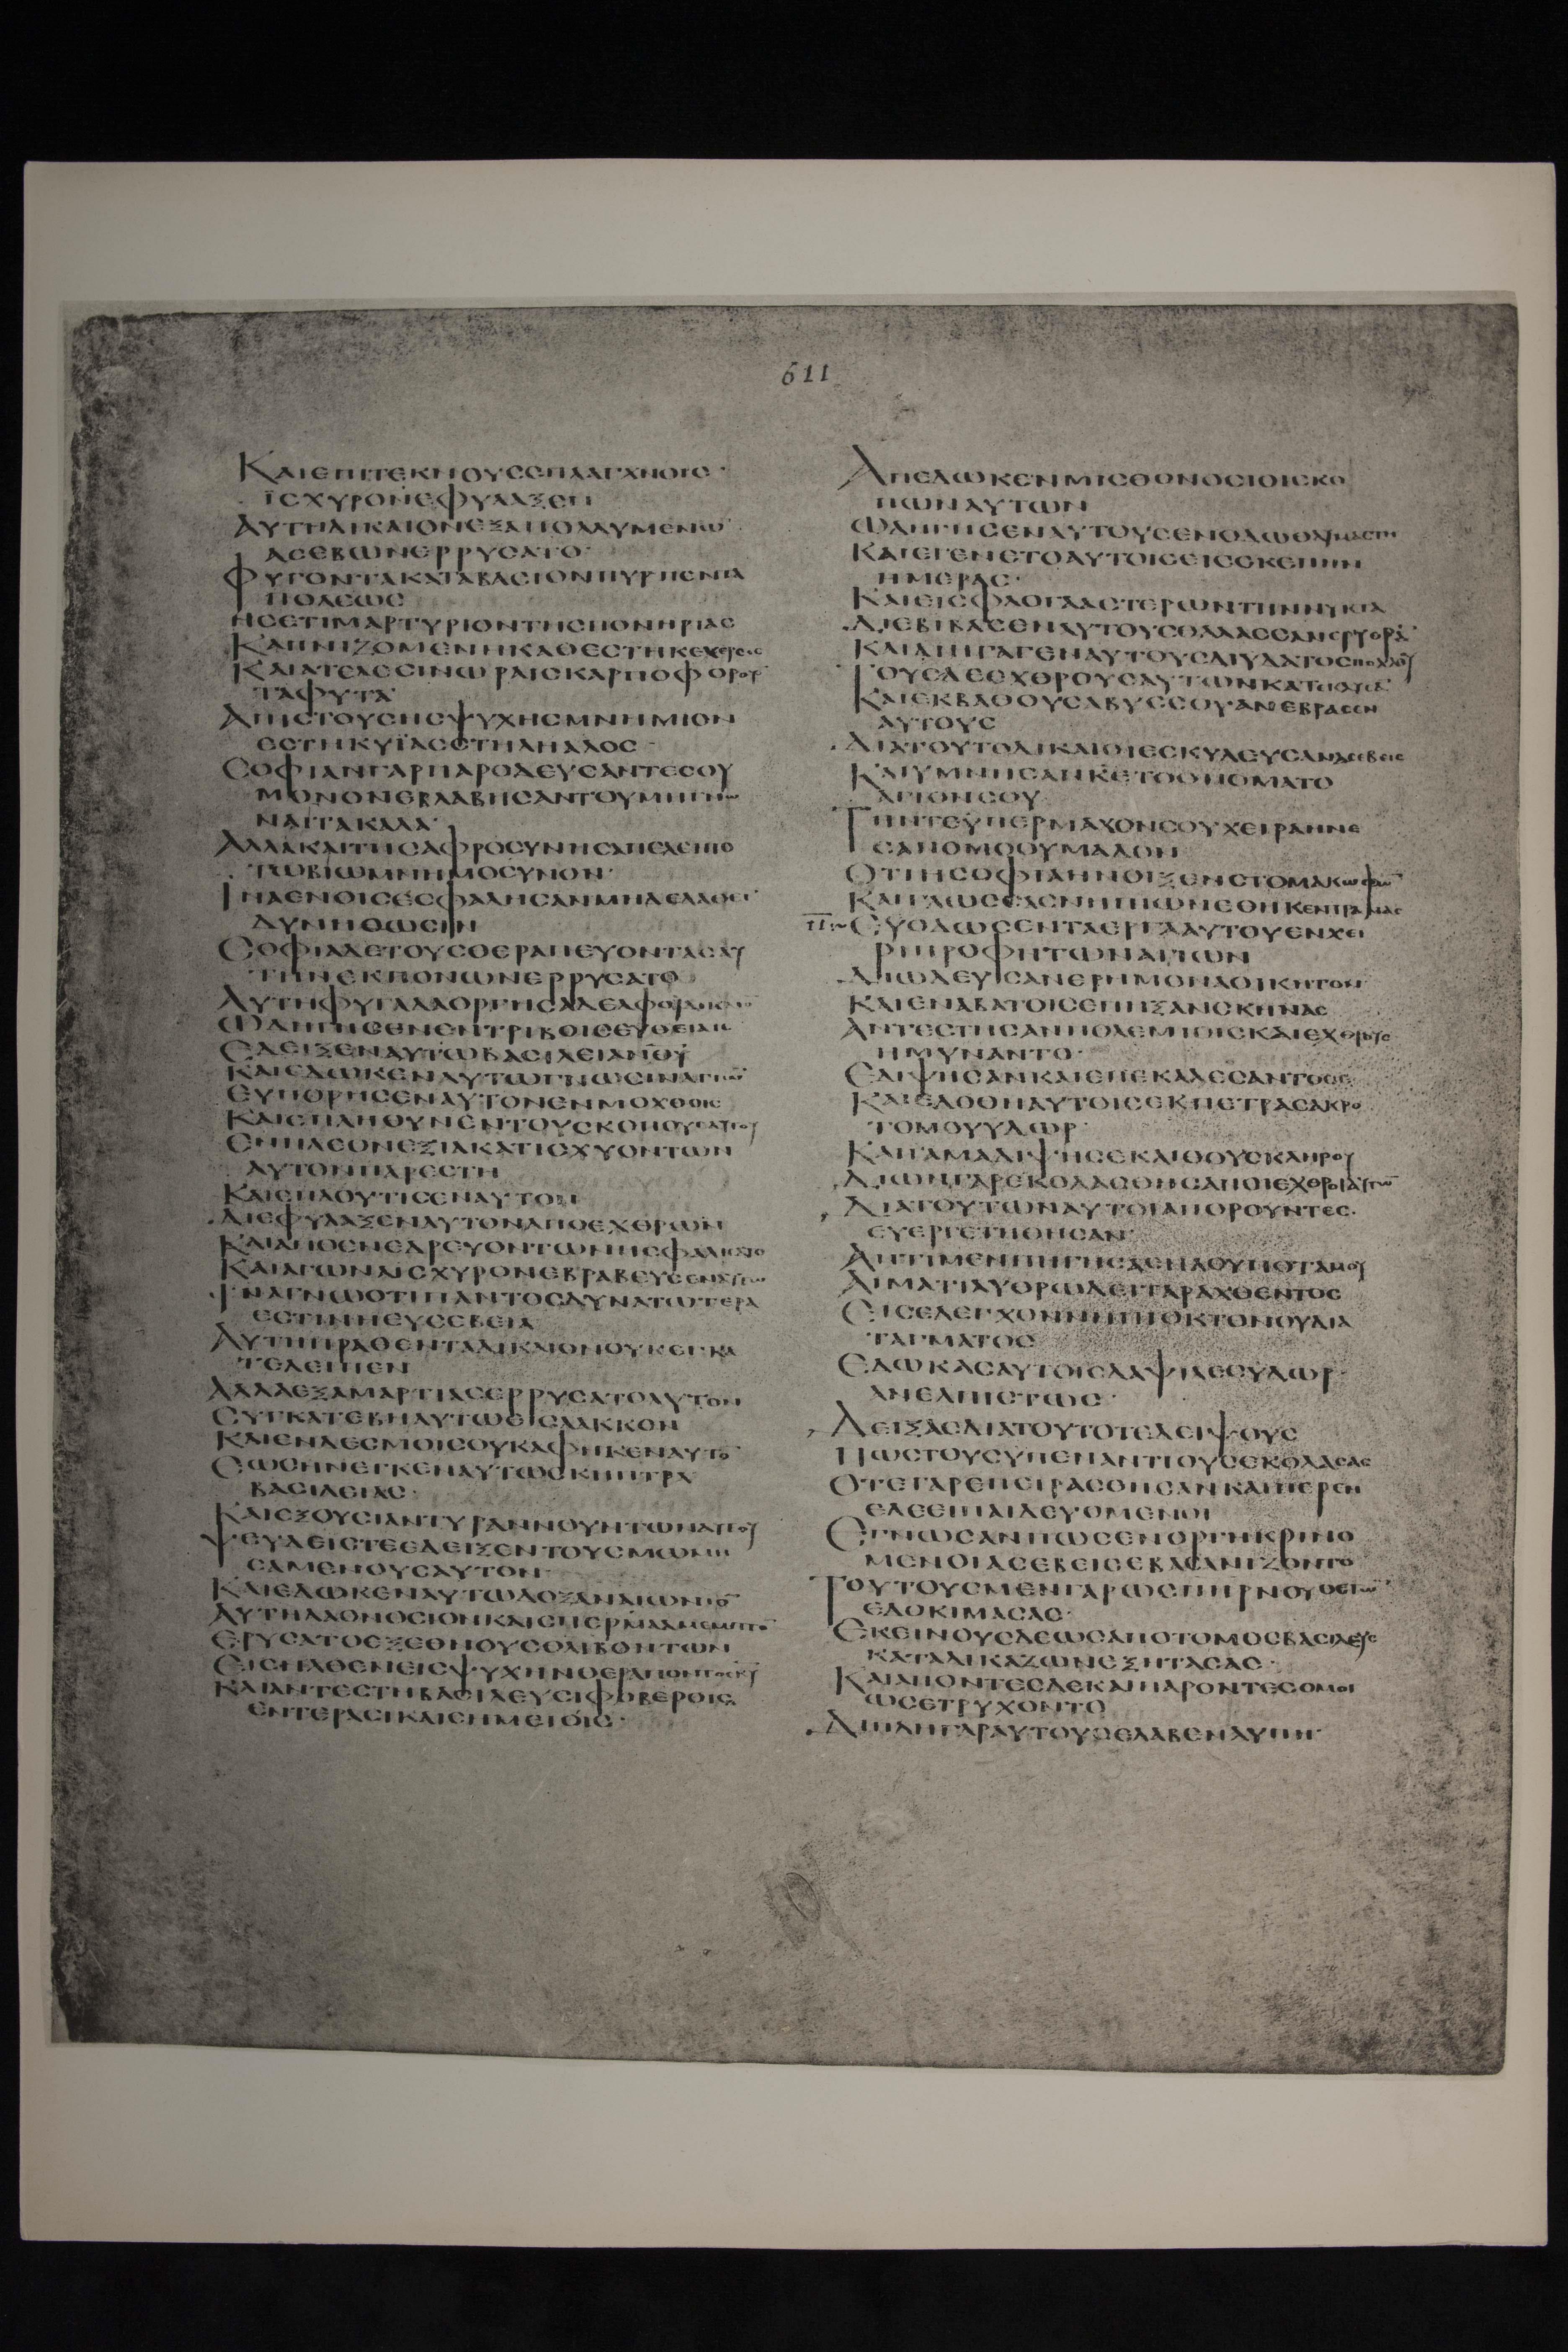 611
ΚΑΙΕΠΙΤΕΚΝΟΥΣΠΛΑΓΧΝΟΙΣ·
ΪΣΧΥΡΟΝΕΦΥΛΑΞΕΝ
ΑΥΤΗΔΙΚΑΙΟΝΕΞΑΠΟΛΛΥΜΕΝΩ̅
ΑΣΕΒΩΝΕΡΡΥΣΑΤΟ·
ΦΥΓΟΝΤΑΚΑΤΑΒΑΣΙΟΝΠΥΡΠΕΝΤΑ
ΠΟΛΕΩΣ
ΗΣΕΤΙΜΑΡΤΥΡΙΟΝΤΗΣΠΟΝΗΡΙΑΣ
ΚΑΠΝΙΖΟΜΕΝΗΚΑΘΕΣΤΗΚΕΧΕΡΣΟΣ
ΚΑΙΑΤΕΛΕΣΙΝΩΡΑΙΣΚΑΡΠΟΦΟΡΟΥ̅
ΤΑΦΥΤΑ·
ΑΠΙΣΤΟΥΣΗΣΨΥΧΗΣΜΝΗΜΙΟΝ
ΕΣΤΗΚΥΪΑΣΣΤΗΛΗΑΛΟΣ·
ΣΟΦΙΑΝΓΑΡΠΑΡΟΔΕΥΣΑΝΤΕΣΟΥ
ΜΟΝΟΝΕΒΛΑΒΗΣΑΝΤΟΥΜΗΓΝΩ
ΝΑΙΤΑΚΑΛΑ·
ΑΛΛΑΚΑΙΤΗΣΑΦΡΟΣΥΝΗΣΑΠΕΛΕΙΠΟ̅
ΤΩΒΙΩΜΝΗΜΟΣΥΝΟΝ·
ΙΝΑΕΝΟΙΣΕΣΦΑΛΗΣΑΝΜΗΔΕΛΑΘΕΙ̅
ΔΥΝΗΘΩΣΙΝ
ΣΟΦΙΑΔΕΤΟΥΣΘΕΡΑΠΕΥΟΝΤΑΣΑΥ
ΤΗΝΕΚΠΟΝΩΝΕΡΡΥΣΑΤΟ
ΑΥΤΗΦΥΓΑΔΑΟΡΓΗΣΑΔΕΛΦΟΥΔΙΚΑΙΟ̅
ΩΔΗΓΗΣΕΝΕΝΤΡΙΒΟΙΣΕΥΘΕΙΑΙΣ
ΕΔΕΙΞΕΝΑΥΤΩΒΑΣΙΛΕΙΑΝΘ̅Υ̅
ΚΑΙΕΔΩΚΕΝΑΥΤΩΓΝΩΣΙΝΑΓΙΩ̅
ΕΥΠΟΡΗΣΕΝΑΥΤΟΝΕΝΜΟΧΘΟΙΣ
ΚΑΙΕΠΛΗΘΥΝΕΝΤΟΥΣΚΟΠΟΥΣΑΥΤΟΥ
ΕΝΠΛΕΟΝΕΞΙΑΚΑΤΙΣΧΥΟΝΤΩΝ
ΑΥΤΟΝΠΑΡΕΣΤΗ
ΚΑΙΕΠΛΟΥΤΙΣΕΝΑΥΤΟΝ
ΔΙΕΦΥΛΑΞΕΝΑΥΤΟΝΑΠΟΕΧΘΡΩΝ
ΚΑΙΑΠΟΕΝΕΔΡΕΥΟΝΤΩΝΗΣΦΑΛΙΣΑΤΟ
ΚΑΙΑΓΩΝΑΙΣΧΥΡΟΝΕΒΡΑΒΕΥΣΕΝΑΥΤΩ
ΙΝΑΓΝΩΟΤΙΠΑΝΤΟΣΔΥΝΑΤΩΤΕΡΑ
ΕΣΤΙΝΗΕΥΣΕΒΕΙΑ
ΑΥΤΗΠΡΑΘΕΝΤΑΔΙΚΑΙΟΝΟΥΚΕΓΚΑ
ΤΕΛΕΙΠΕΝ
ΑΛΛΑΕΞΑΜΑΡΤΙΑΣΕΡΡΥΣΑΤΟΑΥΤΟΝ
ΣΥΓΚΑΤΕΒΗΑΥΤΩΕΙΣΛΑΚΚΟΝ
ΚΑΙΕΝΔΕΣΜΟΙΣΟΥΚΑΦΗΚΕΝΑΥΤΟ̅
ΕΩΣΗΝΕΓΚΕΝΑΥΤΩΣΚΗΠΤΡΑ
ΒΑΣΙΛΕΙΑΣ·
ΚΑΙΕΞΟΥΣΙΑΝΤΥΡΑΝΝΟΥΝΤΩΝΑΥΤΟΥ
ΨΕΥΔΕΙΣΤΕΕΔΕΙΞΕΝΤΟΥΣΜΩΜΗ
ΣΑΜΕΝΟΥΣΑΥΤΟΝ·
ΚΑΙΕΔΩΚΕΝΑΥΤΩΔΟΞΑΝΑΙΩΝΙΟ̅
ΑΥΤΗΛΑΟΝΟΣΙΟΝΚΑΙΣΠΕΡΜΑΑΜΕΜΠΤΟ̅
ΕΡΥΣΑΤΟΕΞΕΘΝΟΥΣΘΛΙΒΟΝΤΩΝ
ΕΙΣΗΛΘΕΝΕΙΣΨΥΧΗΝΘΕΡΑΠΟΝΤΟΣΚ̅Υ̅
ΚΑΙΑΝΤΕΣΤΗΒΑΣΙΛΕΥΣΙΦΟΒΕΡΟΙΣ
ΕΝΤΕΡΑΣΙΚΑΙΣΗΜΕΙΟΙΣ·
ΑΠΕΔΩΚΕΝΜΙΣΘΟΝΟΣΙΟΙΣΚΟ
ΠΩΝΑΥΤΩΝ
ΩΔΗΓΗΣΕΝΑΥΤΟΥΣΕΝΟΔΩΘΑΥΜΑΣΤΗ
ΚΑΙΕΓΕΝΕΤΟΑΥΤΟΙΣΕΙΣΣΚΕΠΗΝ
ΗΜΕΡΑΣ·
ΚΑΙΕΙΣΦΛΟΓΑΑΣΤΕΡΩΝΤΗΝΝΥΚΤΑ
ΔΙΕΒΙΒΑΣΕΝΑΥΤΟΥΣΘΑΛΑΣΣΑΝΕΡΥΘΡΑ̅
ΚΑΙΔΙΗΓΑΓΕΝΑΥΤΟΥΣΔΙΥΔΑΤΟΣΠΟΛΛΟΥ
ΤΟΥΣΔΕΕΧΘΡΟΥΣΑΥΤΩΝΚΑΤΕΚΛΥΣΕ̅
ΚΑΙΕΚΒΑΘΟΥΣΑΒΥΣΣΟΥΑΝΕΒΡΑΣΕΝ
ΑΥΤΟΥΣ
ΔΙΑΤΟΥΤΟΔΙΚΑΙΟΙΕΣΚΥΛΕΥΣΑΝΑΣΕΒΕΙΣ
ΚΑΙΥΜΝΗΣΑΝΚ̅Ε̅ΤΟΟΝΟΜΑΤΟ
ΑΓΙΟΝΣΟΥ
ΤΗΝΤΕΥΠΕΡΜΑΧΟΝΣΟΥΧΕΙΡΑΗΝΕ
ΣΑΝΟΜΟΘΥΜΑΔΟΝ
ΟΤΙΗΣΟΦΙΑΗΝΟΙΞΕΝΣΤΟΜΑΚΩΦΩ̅
ΚΑΙΓΛΩΣΣΑΣΝΗΠΙΩΝΕΘΗΚΕΝΤΡΑΝΑΣ
ΕΥΟΔΩΣΕΝΤΑΕΡΓΑΑΥΤΟΥΕΝΧΕΙ
ΡΙΠΡΟΦΗΤΩΝΑΓΙΩΝ
ΔΙΩΔΕΥΣΑΝΕΡΗΜΟΝΑΟΙΚΗΤΟΝ
ΚΑΙΕΝΑΒΑΤΟΙΣΕΠΗΞΑΝΣΚΗΝΑΣ
ΑΝΤΕΣΤΗΣΑΝΠΟΛΕΜΙΟΙΣΚΑΙΕΧΘΡΟΥΣ
ΗΜΥΝΑΝΤΟ·
ΕΔΙΨΗΣΑΝΚΑΙΕΠΕΚΑΛΕΣΑΝΤΟΣΕ
ΚΑΙΕΔΟΘΗΑΥΤΟΙΣΕΚΠΕΤΡΑΣΑΚΡΟ
ΤΟΜΟΥΥΔΩΡ·
ΚΑΙΙΑΜΑΔΙΨΗΣΕΚΛΙΘΟΥΣΚΛΗΡΟΥ
ΔΙΩΝΓΑΡΕΚΟΛΑΣΘΗΣΑΝΟΙΕΧΘΡΟΙΑΥΤΩ̅
ΔΙΑΤΟΥΤΩΝΑΥΤΟΙΑΠΟΡΟΥΝΤΕΣ·
ΕΥΕΡΓΕΤΗΘΗΣΑΝ
ΑΝΤΙΜΕΝΠΗΓΗΣΑΕΝΑΟΥΠΟΤΑΜΟΥ
ΑΙΜΑΤΙΛΥΘΡΩΔΕΙΤΑΡΑΧΘΕΝΤΟΣ
ΕΙΣΕΛΕΓΧΟΝΝΗΠΙΟΚΤΟΝΟΥΔΙΑ
ΤΑΓΜΑΤΟΣ
ΕΔΩΚΑΣΑΥΤΟΙΣΔΑΨΙΛΕΣΥΔΩΡ·
ΑΝΕΛΠΙΣΤΩΣ·
ΔΕΙΞΑΣΔΙΑΤΟΥΤΟΤΕΔΕΙΨΟΥΣ
ΠΩΣΤΟΥΣΥΠΕΝΑΝΤΙΟΥΣΕΚΟΛΑΣΑΣ
ΟΤΕΓΑΡΕΠΕΙΡΑΣΘΗΣΑΝΚΑΙΠΕΡΕΝ
ΕΛΕΕΙΠΑΙΔΕΥΟΜΕΝΟΙ
ΕΓΝΩΣΑΝΠΩΣΕΝΟΡΓΗΚΡΙΝΟ
ΜΕΝΟΙΑΣΕΒΕΙΣΕΒΑΣΑΝΙΖΟΝΤΟ
ΤΟΥΤΟΥΣΜΕΝΓΑΡΩΣΠΗΡΝΟΥΘΕΤΩ̅
ΕΔΟΚΙΜΑΣΑΣ·
ΕΚΕΙΝΟΥΣΔΕΩΣΑΠΟΤΟΜΟΣΒΑΣΙΛΕΥΣ
ΚΑΤΑΔΙΚΑΖΩΝΕΞΗΤΑΣΑΣ·
ΚΑΙΑΠΟΝΤΕΣΔΕΚΑΙΠΑΡΟΝΤΕΣΟΜΟΙ
ΩΣΕΤΡΥΧΟΝΤΟ
ΔΙΠΛΗΓΑΡΑΥΤΟΥΣΕΛΑΒΕΝΛΥΠΗ·